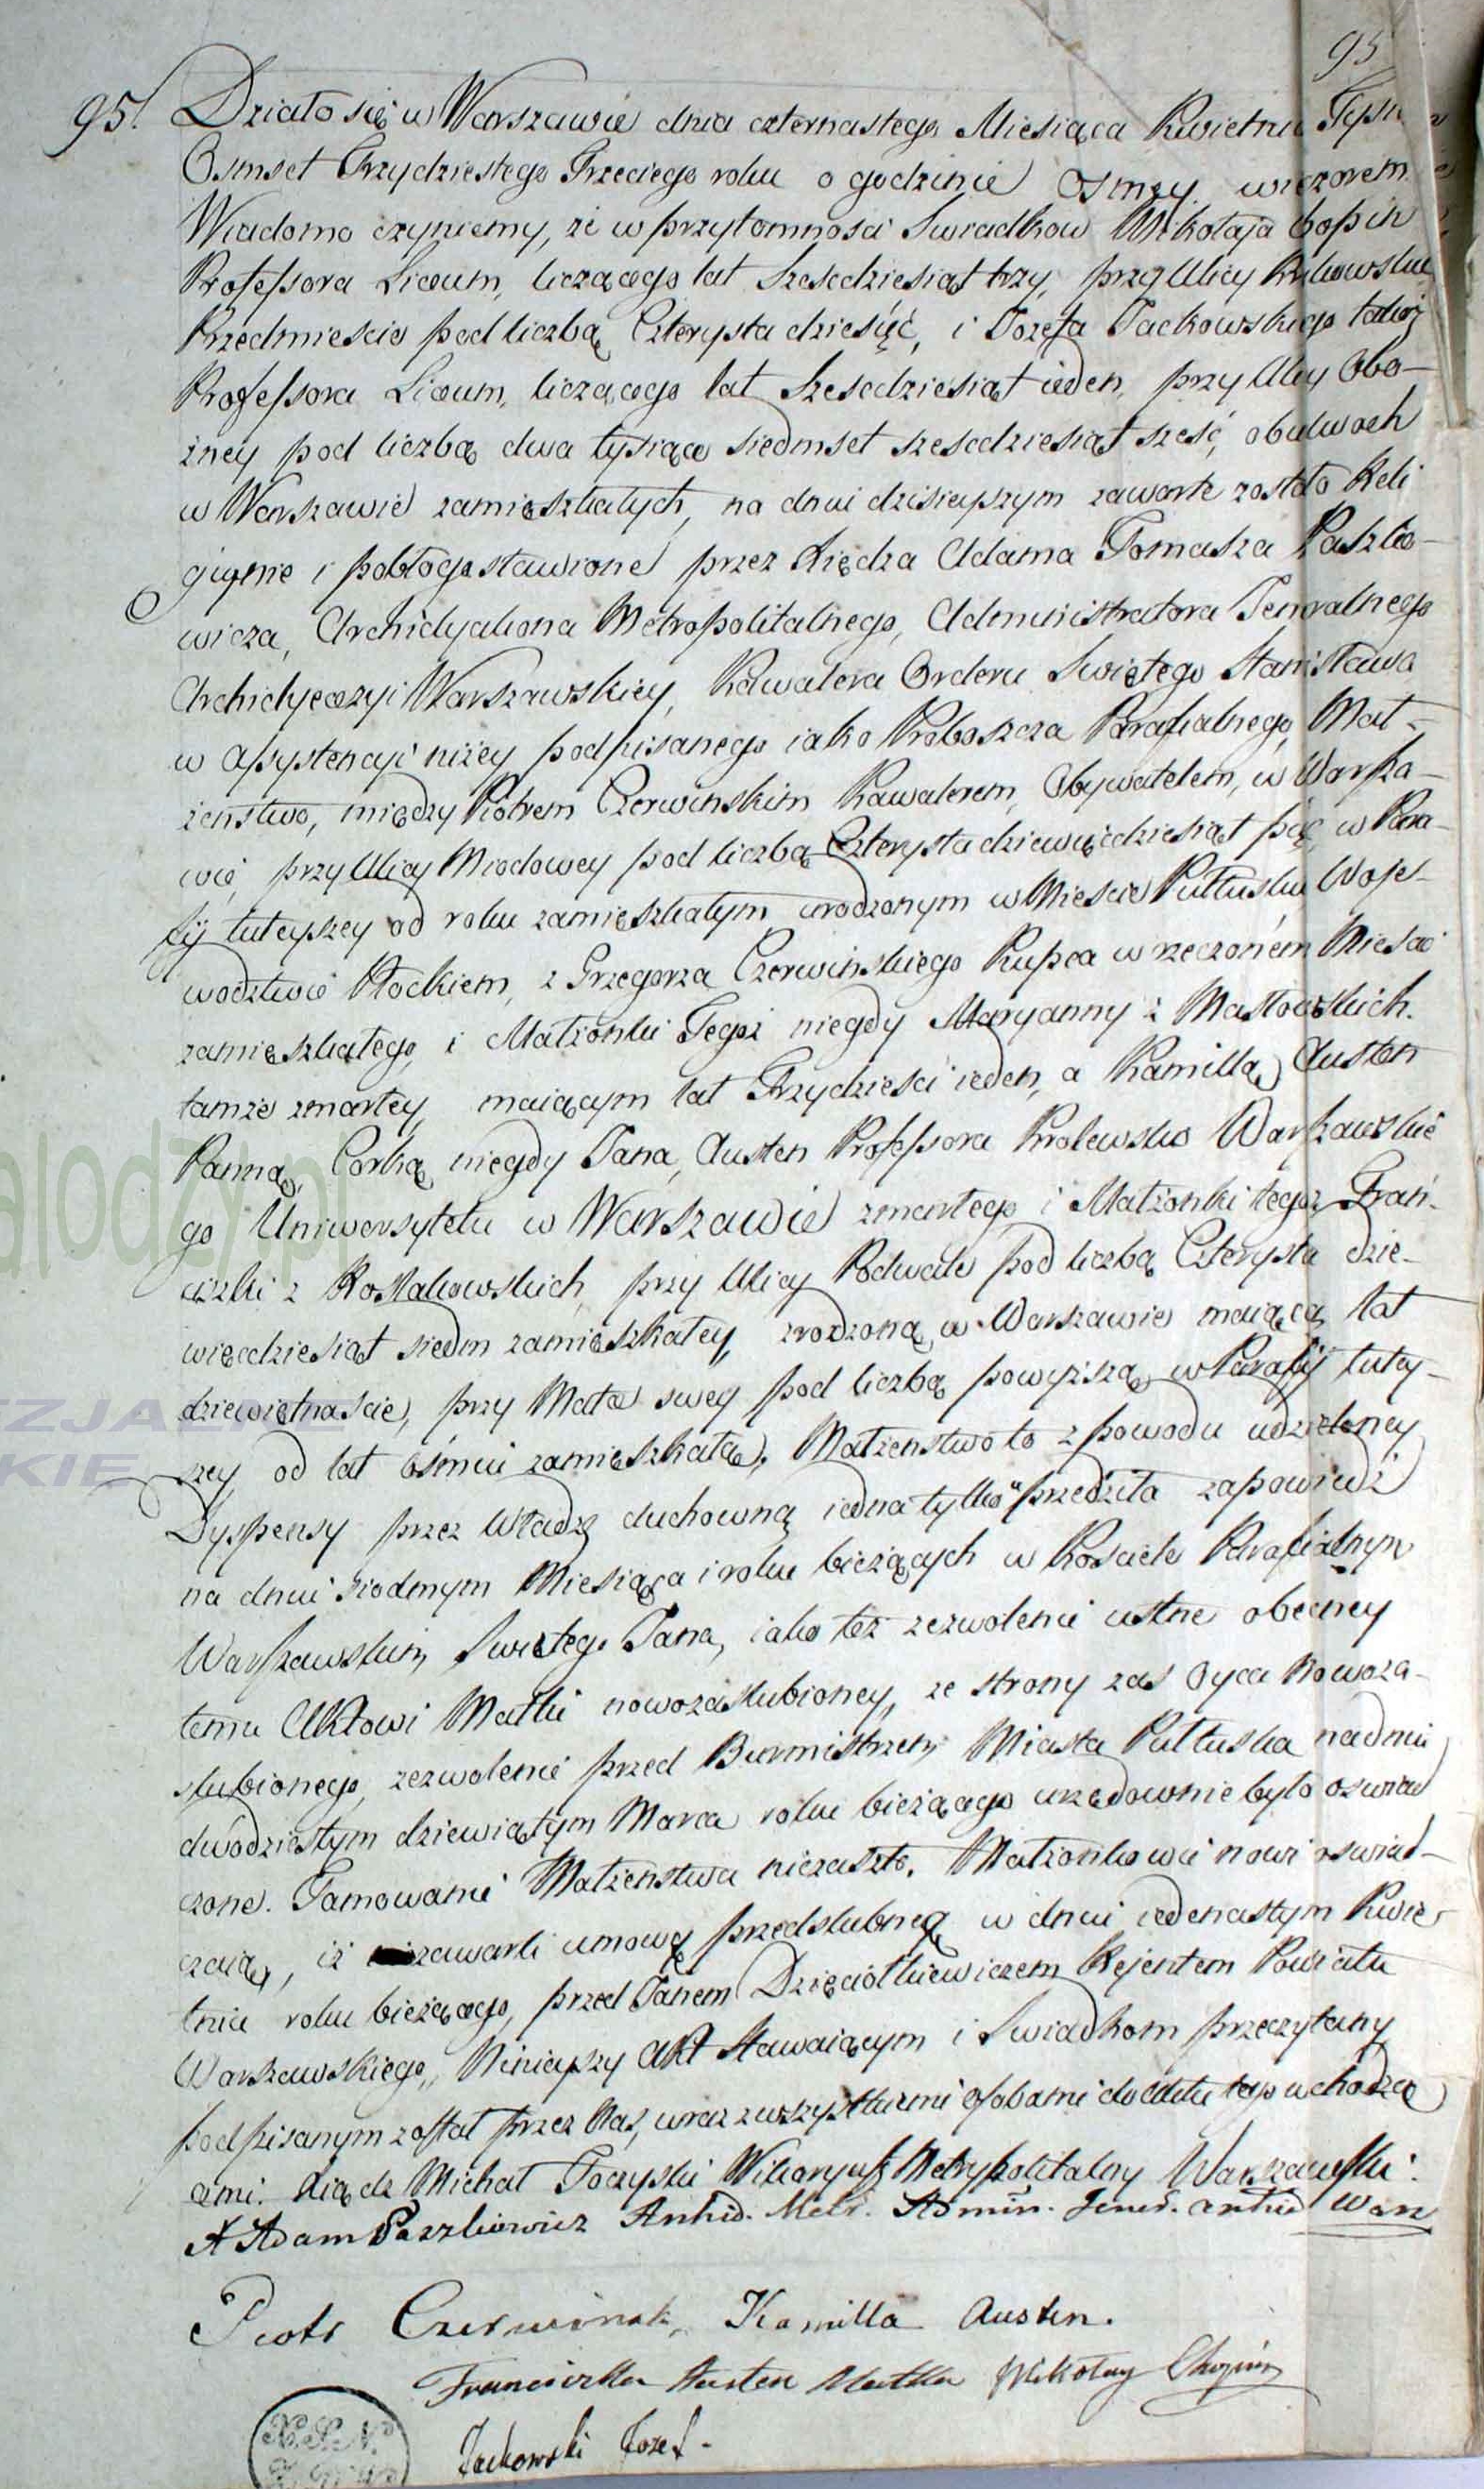 95
95. Działo się w Warszawie dnia czternastego Miesiąca Kwietnia Tysią
Osmset Trzydziestego Trzeciego roku o godzinie osmey wieczorem
Wiadomo czyniemy, że w przytomności Swiadkow Mikołaja Szopin
Professora Liceum, liczącego lat Szescdziesiąt trzy, przy Ulicy Krakowskie
Przedmieście pod liczbą Czterysta dziesięć, i Jozefa Jackowskiego także
Professora Liceum, liczącego lat Szescdziesiąt ieden, przy Ulicy Obo-
zney pod liczbą dwa tysiące siedmset szescdziesiąt szesć, obudwoch
w Warszawie zamieszkałych, na dniu dzisieyszym zawarte zostało Reli
giynie i pobłogosławione przez Xiędza Adama Tomasza Paszko-
wicza, Archidyakona Metropolitalnego, Administratora Jeneralnego
Archidyecezyi Warszawskiey, Kawalera Orderu Swiętego Stanisława
w Assystencyi niżey podpisanego iako Proboszcza Parafialnego, Mał-
żeństwo, między Piotrem Czerwinskim Kawalerem, Obywatelem, w Warsza-
wie, przy Ulicy Miodowey pod liczbą Czterysta dziewięćdziesiąt pięć, w Para-
fij tuteyszey od roku zamieszkałym urodzonym w Mieście Pułtusku Woje-
wodztwie Płockiem, z Grzegorza Czerwińskiego Kupca w rzeczoném Mieście
zamieszkałego, i Małżonki Tegoż niegdy Maryanny z Masłowskich
tamże zmarłey, maiącym lat Trzydzieści ieden, a Kamillą Austen
Panną, Corką niegdy Jana Austen Professora Krolewsko Warszawskie
go Uniwersytetu w Warszawie zmarłego i Małżonki tegoż Fran-
ciszki z Kostakowskich, przy Ulicy Podwale pod liczbą Czterysta dzie-
więćdziesiąt siedm zamieszkałey, zrodzoną w Warszawie maiącą lat
dziewiętnascie, przy Matce swey pod liczbą powyższą w Parafij tutey-
szey od lat ośmiu zamieszkałą. Małżeństwo to z powodu udzieloney
Dyspensy przez Władzę duchowną iedna tylko przedziła zapowiedź
na dniu siodmym Miesiąca i roku bieżących w Kosciele Parafialnym
Warszawskim Swiętego Jana, iako też zezwolenie ustne obecney
temu Aktowi Matki nowozaslubioney, ze strony zas Oyca Nowoza-
slubionego, zezwolenie przed Burmistrzem Miasta Pułtuska na dniu
dwodziestym dziewiątym Marca roku bieżącego urzędownie było oswiad
czone. Tamowanie Małżenstwa niezaszło. Małżonkowie nowi oswiad-
czaią, iż zawarli umowę przedslubną w dniu iedenastym Kwie-
tnia roku bieżącego, przed Janem Dzięciołkiewiczem Rejentem Powiatu
Warszawskiego, Ninieyszy Akt Stawaiącym i Swiadkom przeczytany
podpisanym został przez Nas, wraz z wszystkiemi osobami do Aktu tego wchodzą
cemi. Xiądz Michał Toczyski Wikaryusz Metropolitalny Warszawski.
X Adam Paszkowicz Archid. Metr. Admin. Jener. Archid Warz
Piotr Czerwinski, Kamilla Austen.
Franciszka Austen Matka Mikołay Chopin
Jackowski Jozef.